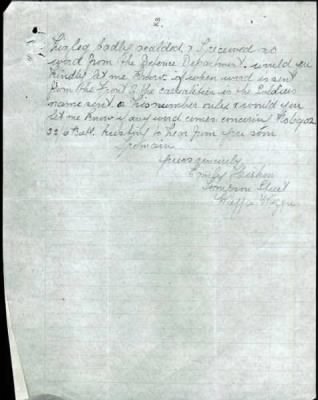 2.
his leg badly scalded & I received no
word from the Defence Department. would you
kindly let me know if when word is sent
from the Front of the casualities is the Soldiers
name sent or his number only & would you
let me know if any word comes concerning
Batt. trusting to hear from you soon
I remain
yours sincerely
Emily
Tompson Street
Wagga Wagga